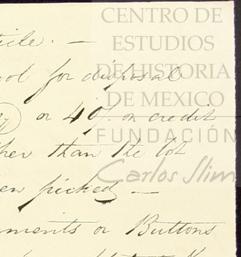 CENTRO DE
ESTUDIOS
DE HISTORIA
DE MEXICO
FUNDACIÓN
Carlos Slim
ticle. —
ool for disposal
or 40 on credit
her than the lot
en picked —
ments or Buttons